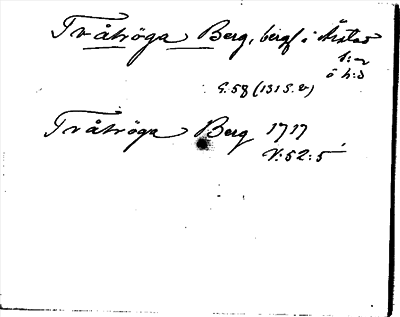 Tråhöga Berg, bergf i Årstad
s:n
ö h:d
G.58 (131 S. 2)
Tråhöga Berg 1717
V:52:5